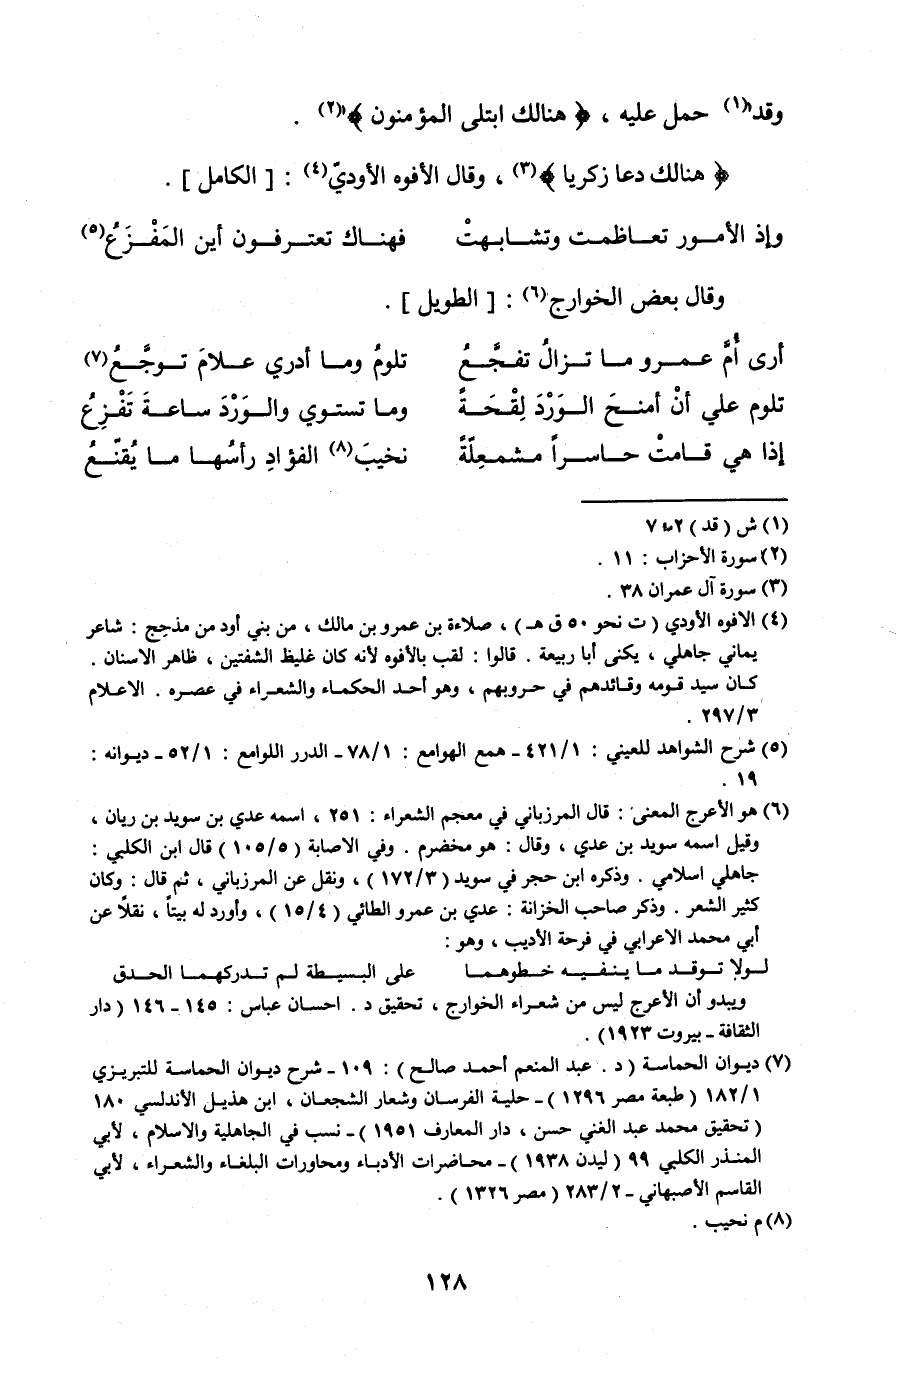 وقد"(١) حمل عليه ، ﴿ هنالك ابتلى المؤمنون ﴾"(٢) .
﴿ هنالك دعا زكريا ﴾(٣) ، وقال الأفوه الأوديّ(٤) : [ الكامل ] .
وإذ الأمـــور تعـــاظمـت وتشـــابهـتْ فهنـــاك تعتـرفـــون أين المَفْـــزَعُ(٥)
وقال بعض الخوارج(٦) : [ الطويل ] .
أرى أُمَّ عمـــرو مـــا تـــزالُ تفجَّـــعُ تلومُ ومـا أدري عـلامَ تـوجَّـعُ(٧)
تلوم علي أنْ أمنـحَ الـوَرْدَ لِقْحَـةً ومـا تستـوي والـوَرْدَ سـاعـةَ تَفْزِعُ
إذا هي قـامتْ حـاسـراً مشمعِلّةً نخيبَ(٨) الفؤادِ رأسُهـا مـا يُقنّـعُ
(١) ش ( قد ) ٧ ٢
(٢) سورة الأحزاب : ١١ .
(٣) سورة آل عمران ٣٨ .
(٤) الافوه الأودي ( ت نحو ٥٠ ق هـ ) ، صلاءة بن عمرو بن مالك ، من بني أود من مذحج : شاعر
يماني جاهلي ، يكنى أبا ربيعة . قالوا : لقب بالأفوه لأنه كان غليظ الشفتين ، ظاهر الاسنان .
كان سيد قومه وقائدهم في حروبهم ، وهو أحد الحكماء والشعراء في عصره . الاعلام
٢٩٧/٣ .
(٥) شرح الشواهد للعيني : ٤٢١/١ ـ همع الهوامع : ٧٨/١ ـ الدرر اللوامع : ٥٢/١ ـ ديوانه :
١٩ .
(٦) هو الأعرج المعنى : قال المرزباني في معجم الشعراء : ٢٥١ ، اسمه عدي بن سويد بن ريان ،
وقيل اسمه سويد بن عدي ، وقال : هو مخضرم . وفي الاصابة ( ١٠٥/٥ ) قال ابن الكلبي :
جاهلي اسلامي . وذكره ابن حجر في سويد ( ١٧٢/٣ ) ، ونقل عن المرزباني ، ثم قال : وكان
كثير الشعر . وذكر صاحب الخزانة : عدي بن عمرو الطائي ( ١٥/٤ ) ، وأورد له بيتاً ، نقلاً عن
أبي محمد الاعرابي في فرحة الأديب ، وهو :
لـولا تـوقـد مـا ينـفيـه خـطوهمـا على البـسيطة لـم تـدركهمـا الحدق
ويبدو أن الأعرج ليس من شعراء الخوارج ، تحقيق د . احسان عباس : ١٤٥ ـ ١٤٦ ( دار
الثقافة ـ بيروت ١٩٢٣) .
(٧) ديوان الحماسة ( د . عبد المنعم أحمد صالح ) : ١٠٩ ـ شرح ديوان الحماسة للتبريزي
١٨٢/١ ( طبعة مصر ١٢٩٦ ) ـ حلية الفرسان وشعار الشجعان ، ابن هذيل الأندلسي ١٨٠
( تحقيق محمد عبد الغني حسن ، دار المعارف ١٩٥١ ) ـ نسب في الجاهلية والاسلام ، لأبي
المنذر الكلبي ٩٩ ( ليدن ١٩٣٨ ) ـ محاضرات الأدباء ومحاورات البلغاء والشعراء ، لأبي
القاسم الأصبهاني ـ ٢٨٣/٢ ( مصر ١٣٢٦ ) .
(٨) م نحيب .
١٢٨